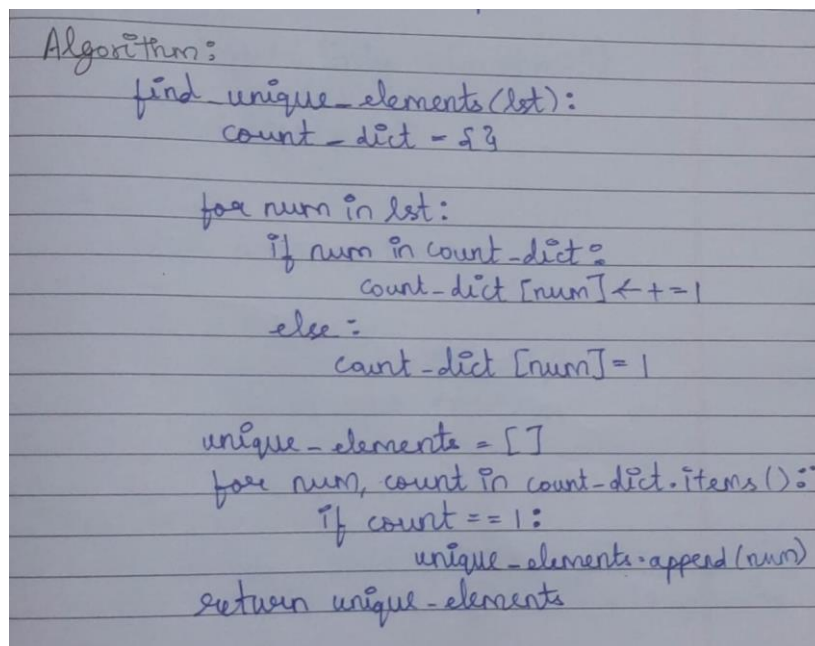 Algorithm:
find_unique_elements(lst):
count_dict = {}
for num in lst:
if num in count_dict:
count_dict [num] ← + = 1
else:
count_dict [num] = 1
unique_elements = []
for num, count in count_dict.items():
if count == 1:
unique_elements.append(num)
return unique_elements